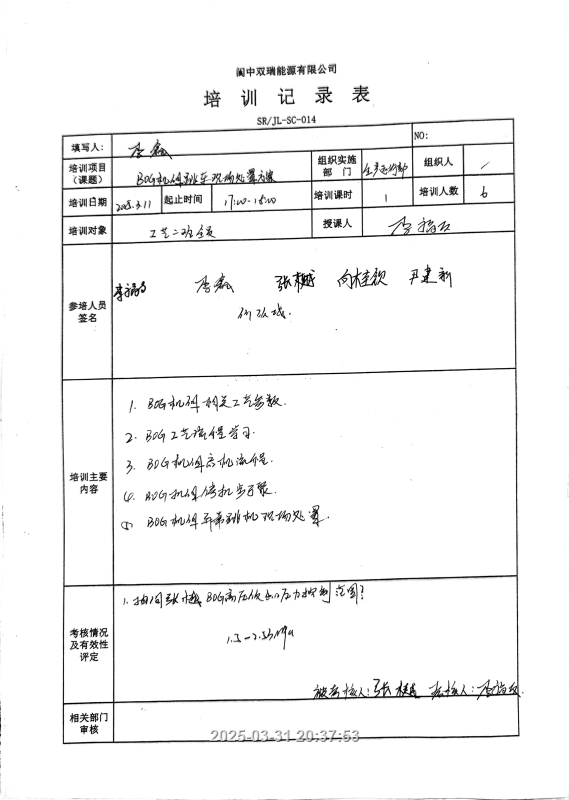 阆中双瑞能源有限公司
培训记录表
SR/JL-SC-014
填写人: 李鑫 NO:
培训项目（课题） BOG机组跳车现场处置方案 组织实施部门 生产运行部 组织人 /
培训日期 2025.3.11 起止时间 17:00-18:00 培训课时 1 培训人数 6
培训对象 工艺二班全员 授课人
参培人员签名 李鑫 张樾 向桂颖 尹建新
培训主要内容
1. BOG机组相关工艺参数.
2. BOG工艺流程学习.
3. BOG机组启机流程.
4. BOG机组停机步骤.
5 BOG机组异常跳机现场处置.
考核情况及有效性评定
1. 抽问张樾BOG高压液出口压力控制范围?
1.5-2.35MPa
被考核人: 张樾 考核人:
相关部门审核
2025-03-31 20:37:53